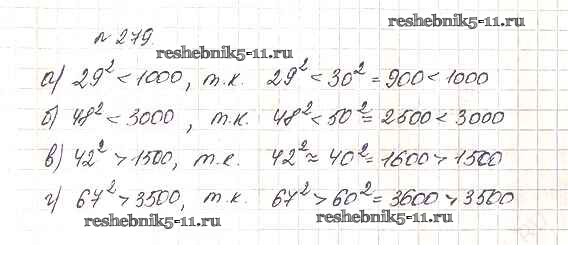 reshebnik5-11.ru
№ 279
reshebnik5-11.ru
а) 29² < 1000, т.к. 29² < 30² = 900 < 1000
б) 48² < 3000, т.к. 48² < 50² = 2500 < 3000
в) 42² > 1500, т.к. 42² ≈ 40² = 1600 > 1500
г) 67² > 3500, т.к. 67² > 60² = 3600 > 3500
reshebnik5-11.ru reshebnik5-11.ru